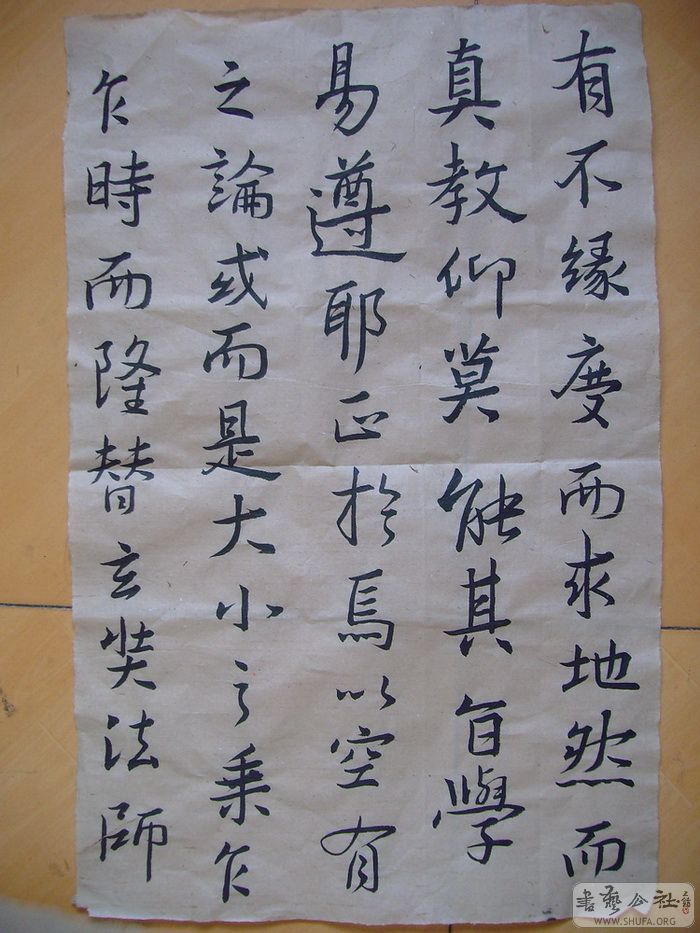 有不緣度而求地然而
真教仰莫能其旨學
易遵耶正於焉以空有
之論或而是大小之乘乍
乍時而隆替玄奘法師
書藝公社
WWW.SHUFA.ORG